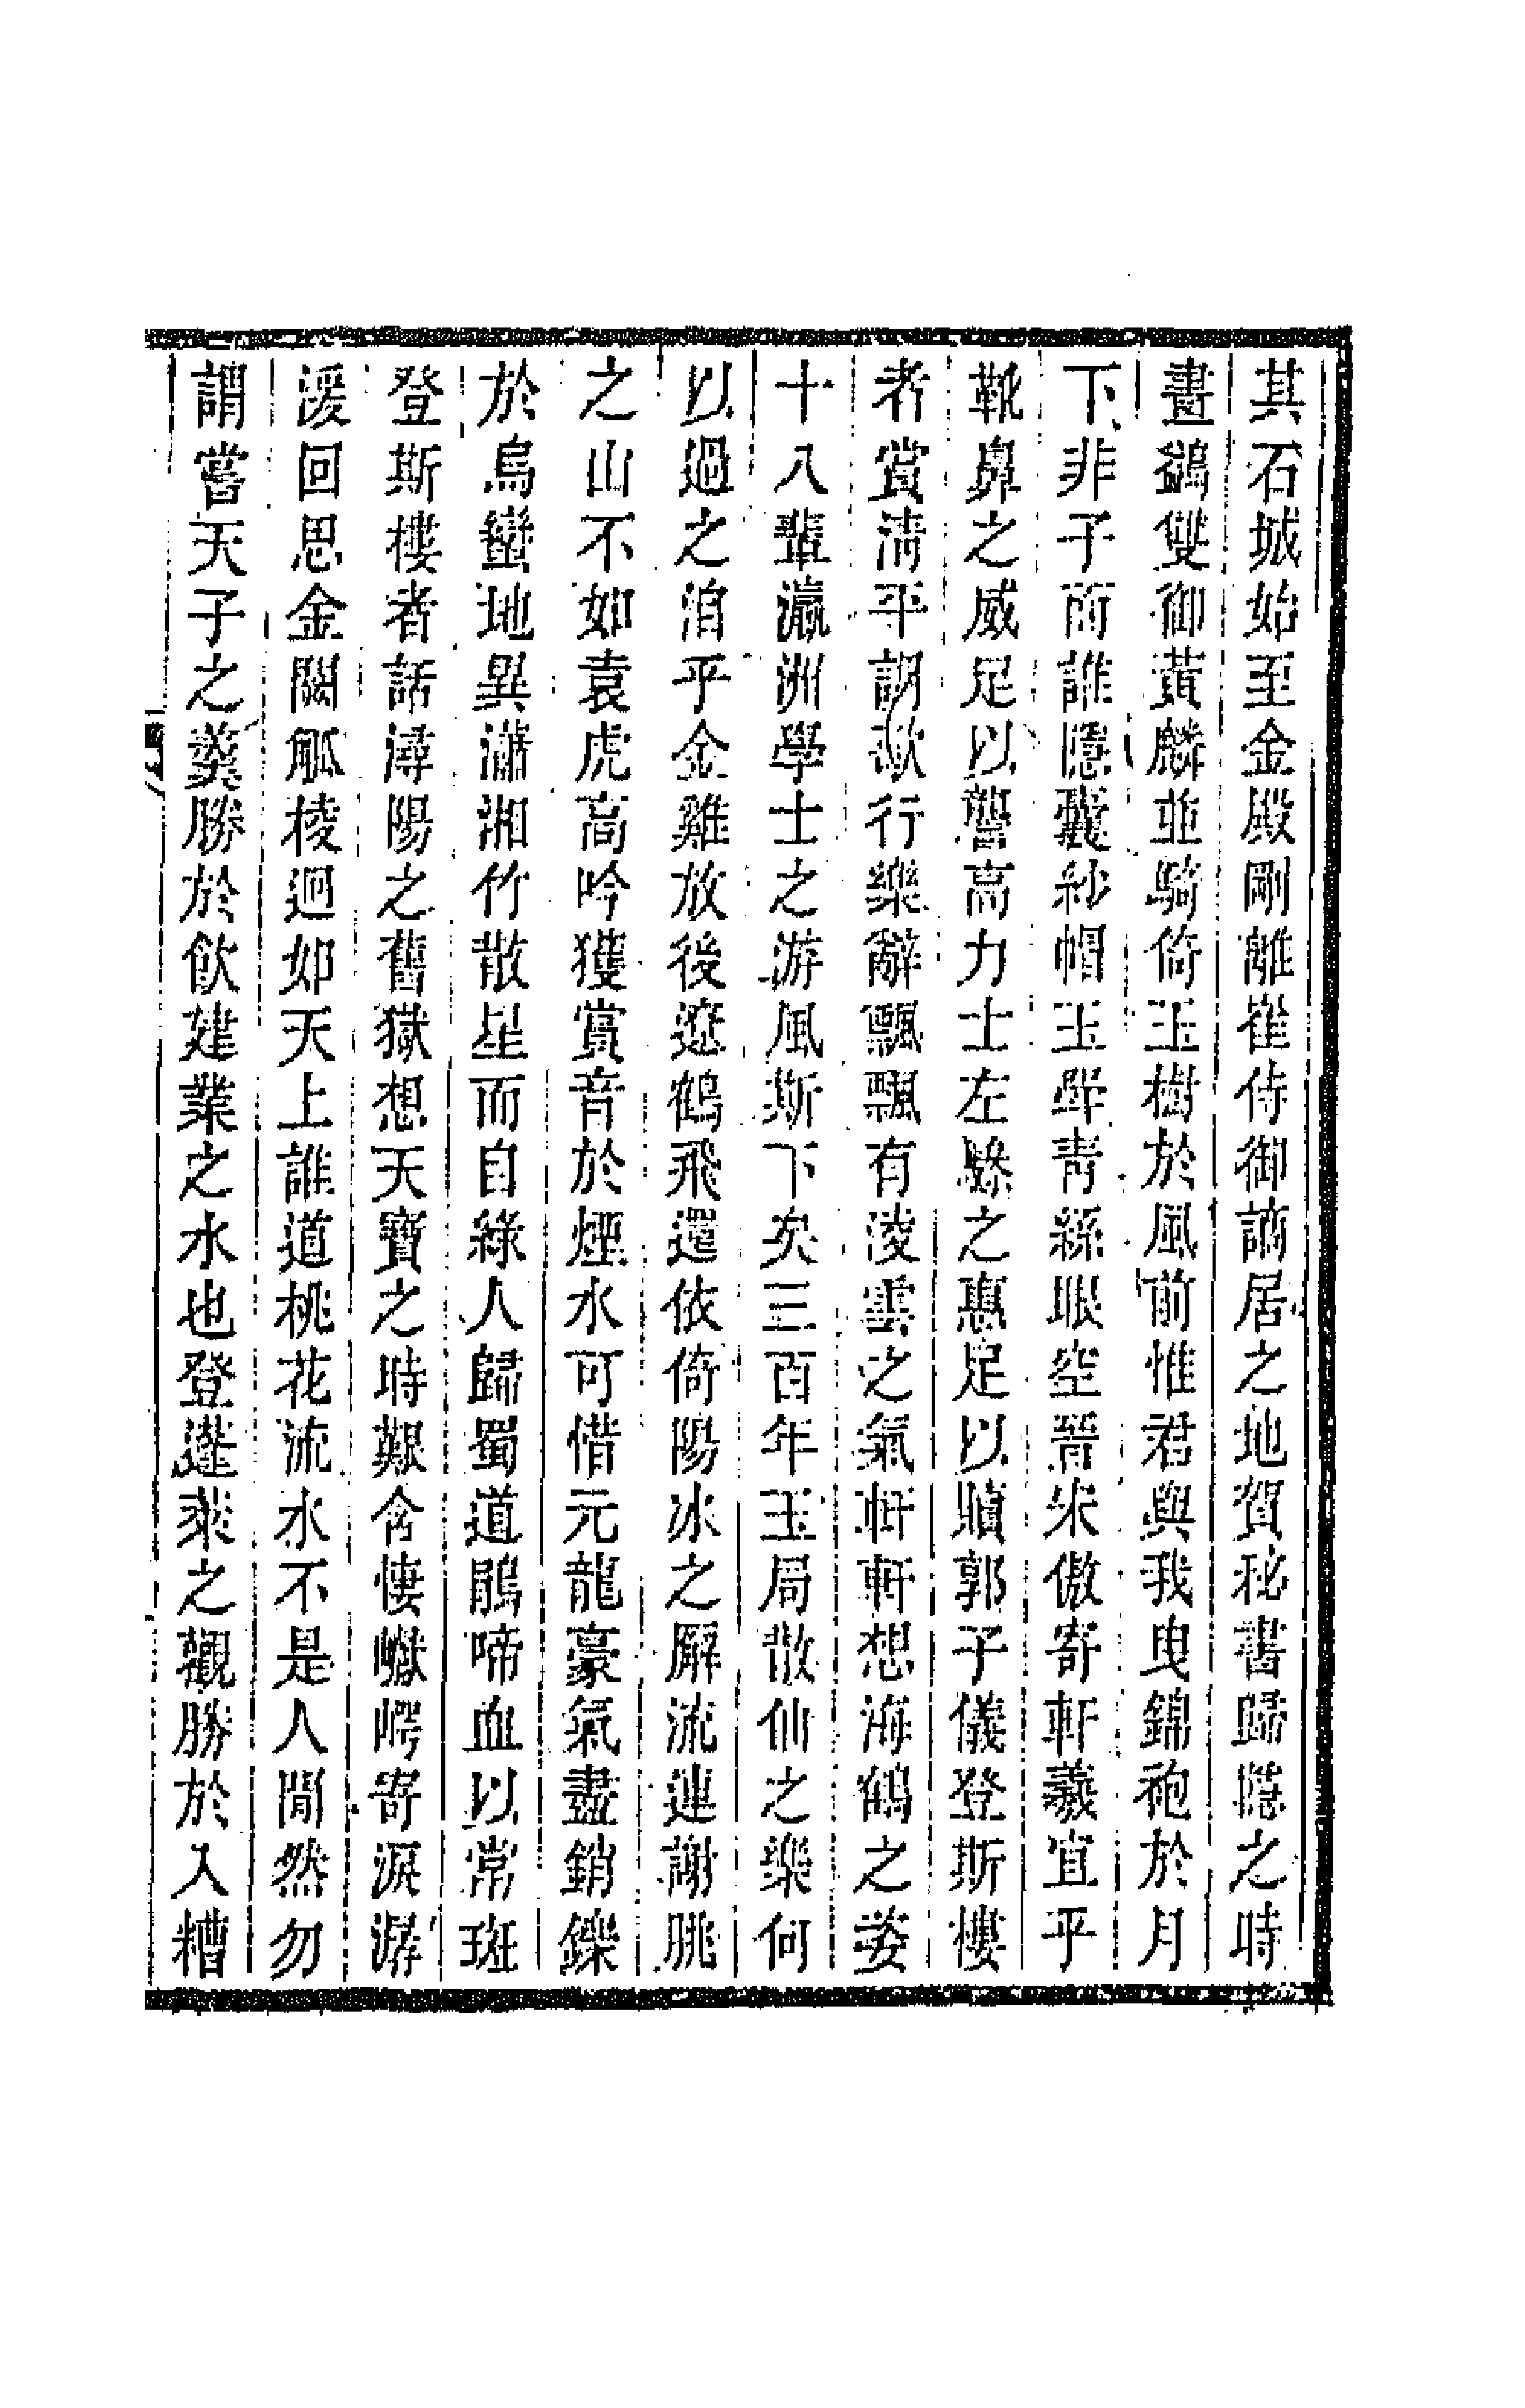 其石城始至金殿剛離崔侍御謫居之地賀秘書歸隱之時
畫鷁雙御黃麟並騎倚玉樹於風前惟君與我曳錦袍於月
下非子而誰隱囊紗帽玉斝青絲眼空晉宋傲寄軒羲宜乎
靴鼻之威足以讋高力士左驂之惠足以贖郭子儀登斯樓
者賞清平調歌行樂辭飄飄有淩雲之氣軒軒想海鶴之姿
十八輩瀛洲學士之游風斯下矣三百年玉局散仙之樂何
以過之洎乎金雞放後遼鶴飛還依倚陽冰之廨流連謝朓
之山不如袁虎高吟獲賞音於煙水可惜元龍豪氣盡銷鑠
於烏蠻地異瀟湘竹散星而自綠人歸蜀道鵑啼血以常斑
登斯樓者話潯陽之舊獄想天寶之時艱含悽巘崿寄淚潺
湲回思金闕觚棱迥如天上誰道桃花流水不是人間然勿
謂嘗天子之羹勝於飲建業之水也登蓬萊之觀勝於入糟